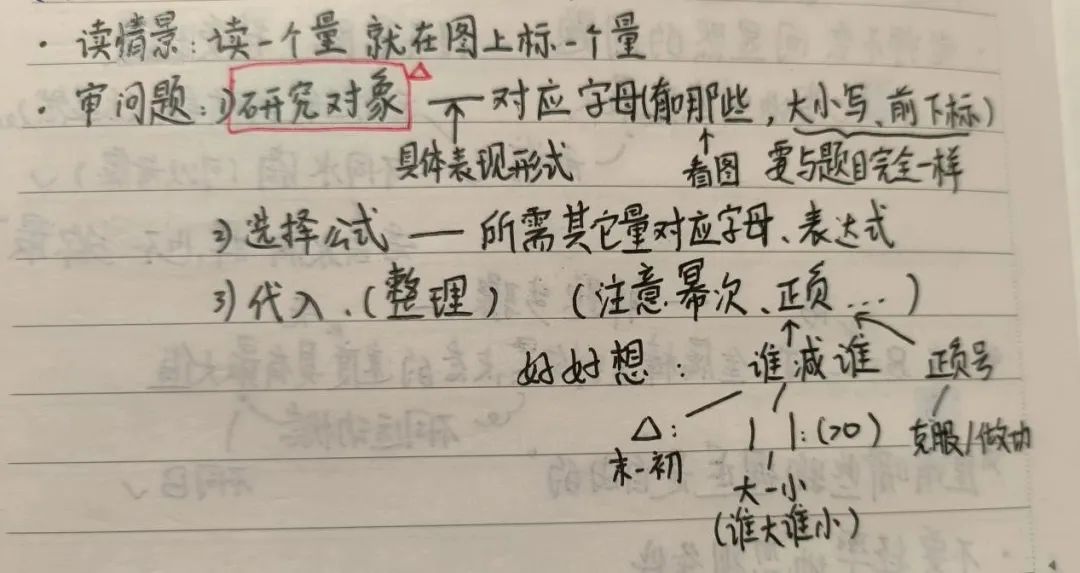 · 读情景:读一个量 就在图上标一个量
· 审问题:1)研究对象△ — 对应字母(有哪些,大小写、前下标)
↑具体表现形式 ↑看图 要与题目完全一样
2)选择公式 — 所需其它量对应字母、表达式
3)代入、(整理) (注意幂次、正负…)
好好想: 谁减谁 正负号
△: | |:(>0) 克服/做功
末-初
大-小
(谁大谁小)